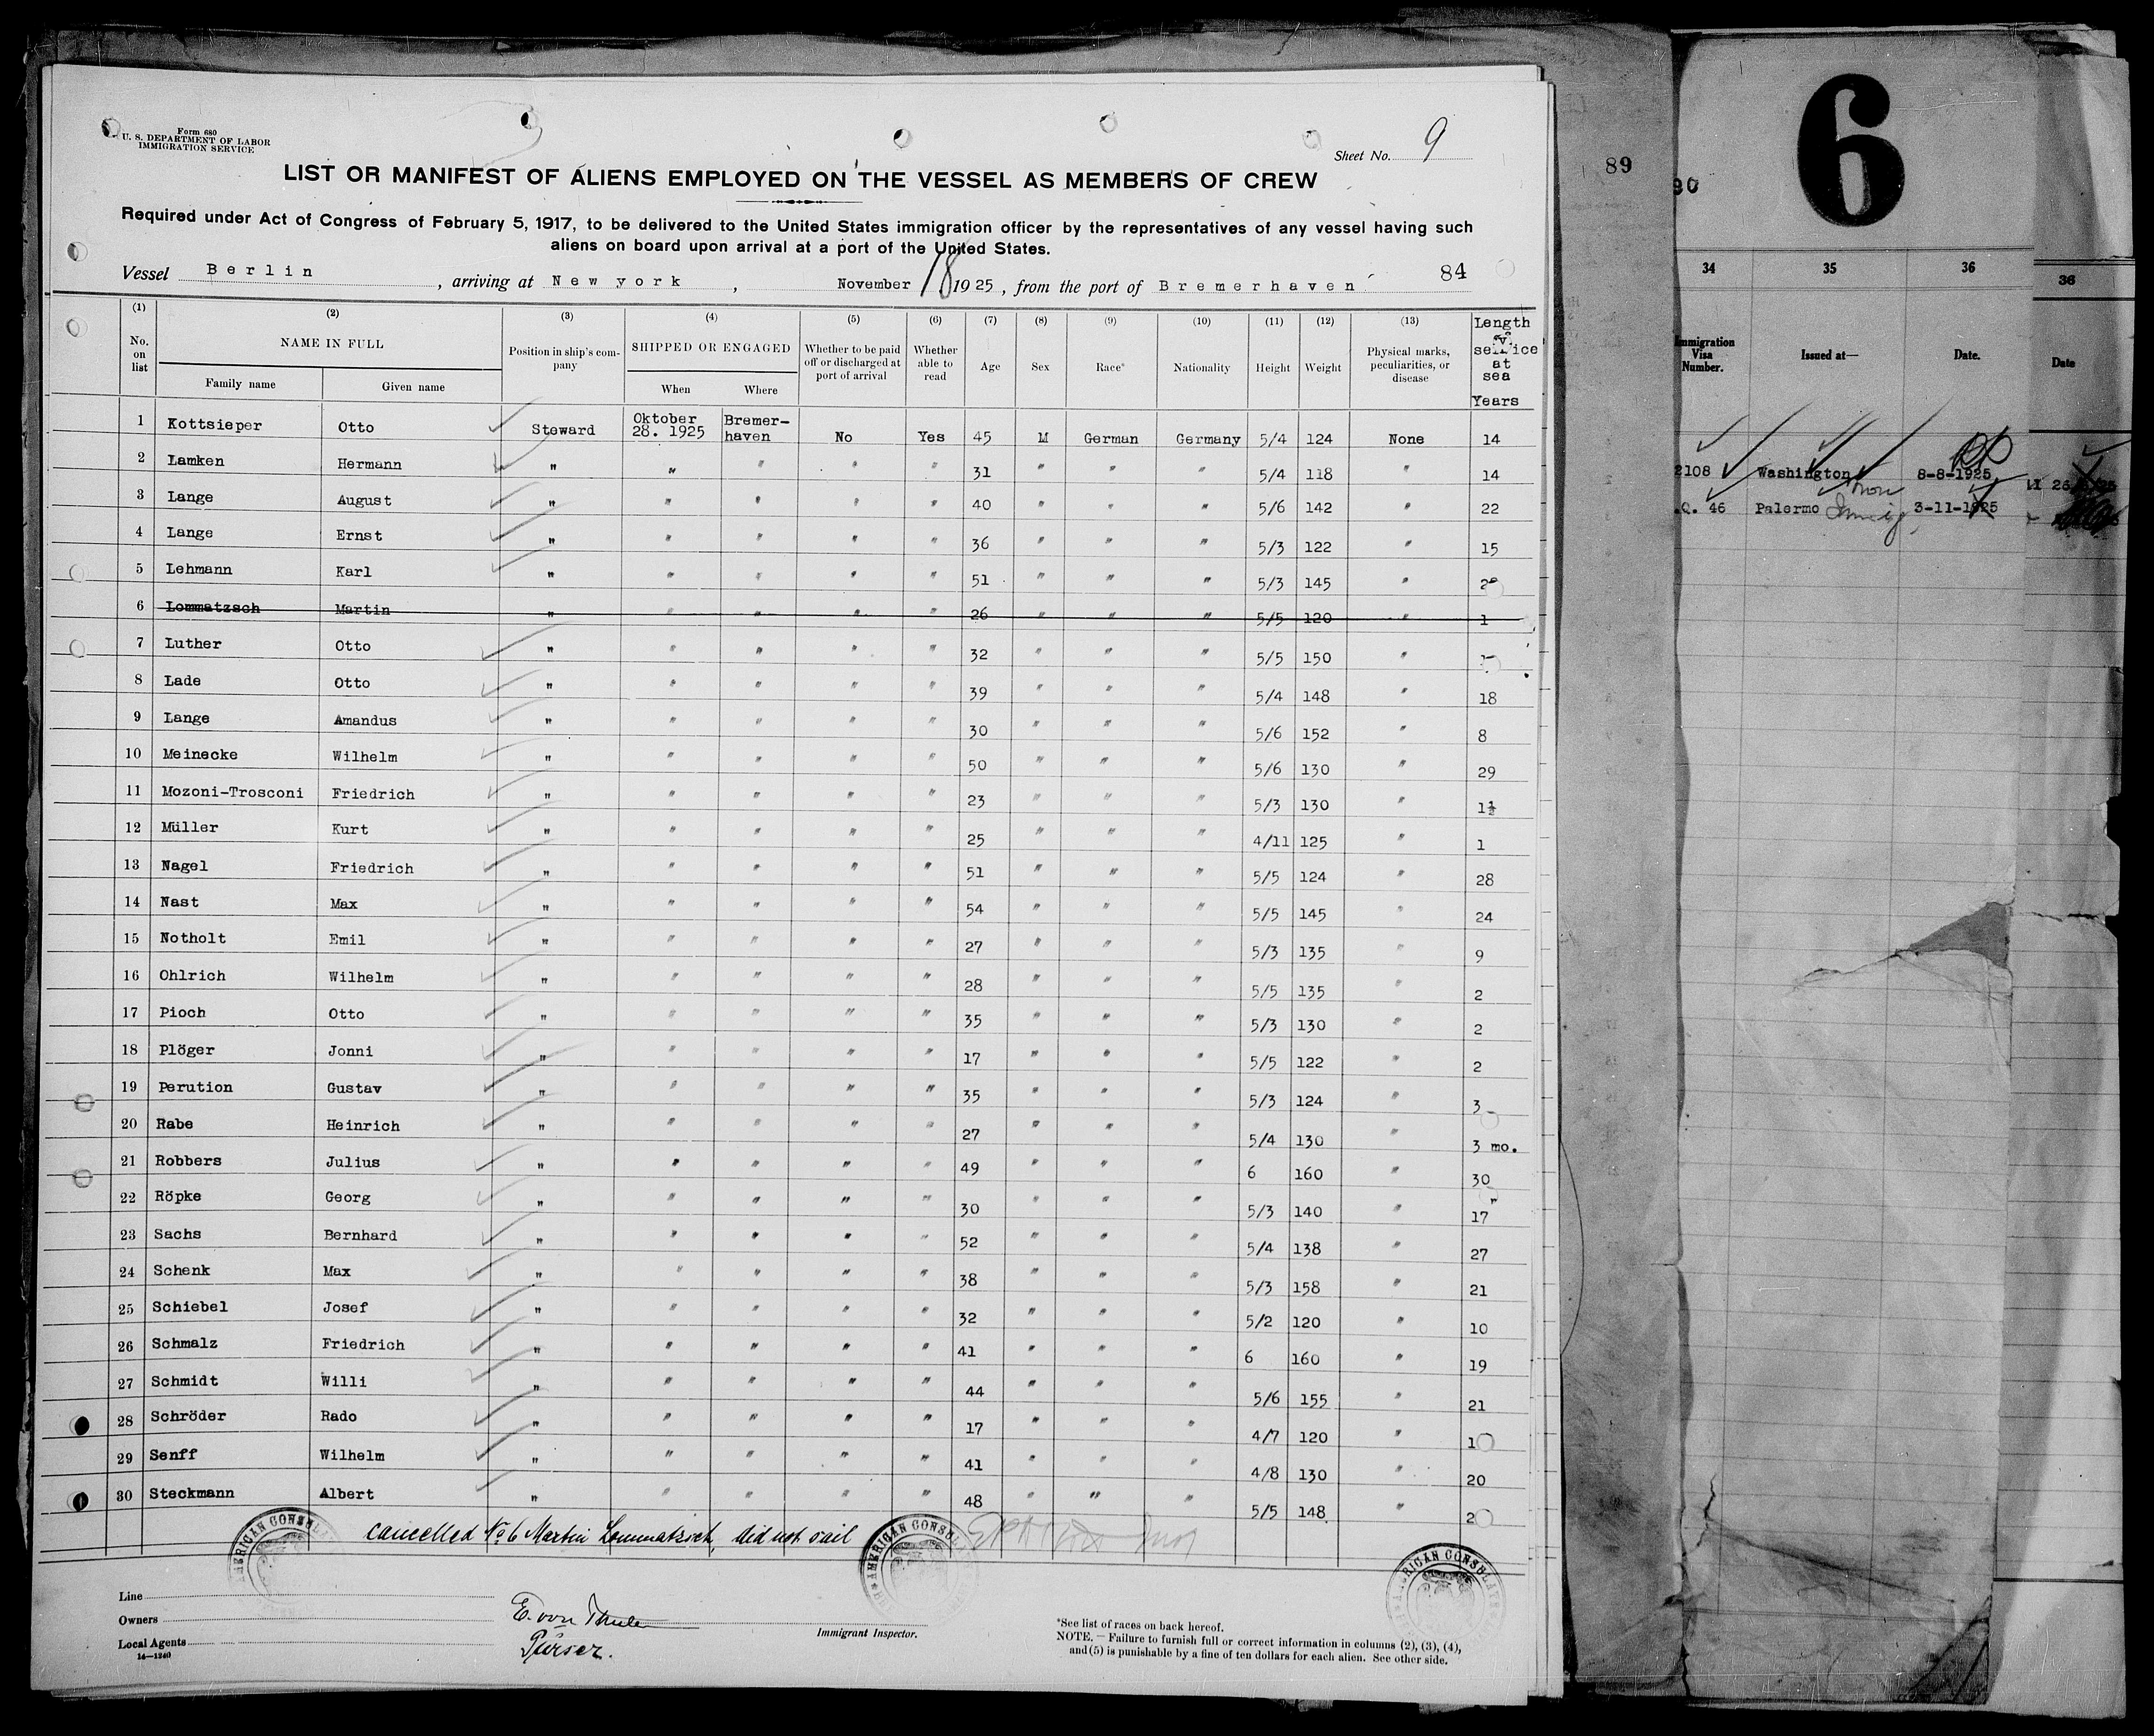 Form 680
U. S. DEPARTMENT OF LABOR
IMMIGRATION SERVICE
Sheet No. 9
LIST OR MANIFEST OF ALIENS EMPLOYED ON THE VESSEL AS MEMBERS OF CREW
Required under Act of Congress of February 5, 1917, to be delivered to the United States immigration officer by the representatives of any vessel having such
aliens on board upon arrival at a port of the United States.
Vessel Berlin, arriving at New york, November 18 1925, from the port of Bremerhaven 84
(1) (2) (3) (4) (5) (6) (7) (8) (9) (10) (11) (12) (13)
No. on list NAME IN FULL Family name Given name Position in ship's company SHIPPED OR ENGAGED When Where Whether to be paid off or discharged at port of arrival Whether able to read Age Sex Race* Nationality Height Weight Physical marks, peculiarities, or disease Length service at sea Years
1 Kottsieper Otto Steward Oktober 28. 1925 Bremer-haven No Yes 45 M German Germany 5/4 124 None 14
2 Lamken Hermann " " " " " 31 " " " 5/4 118 " 14
3 Lange August " " " " " 40 " " " 5/6 142 " 22
4 Lange Ernst " " " " " 36 " " " 5/3 122 " 15
5 Lehmann Karl " " " " " 51 " " " 5/3 145 "
6 Lommatzsch Martin " " " " " 26 " " " 5/5 120 " 1
7 Luther Otto " " " " " 32 " " " 5/5 150 "
8 Lade Otto " " " " " 39 " " " 5/4 148 " 18
9 Lange Amandus " " " " " 30 " " " 5/6 152 " 8
10 Meinecke Wilhelm " " " " " 50 " " " 5/6 130 " 29
11 Mozoni-Trosconi Friedrich " " " " " 23 " " " 5/3 130 " 1½
12 Müller Kurt " " " " " 25 " " " 4/11 125 " 1
13 Nagel Friedrich " " " " " 51 " " " 5/5 124 " 28
14 Nast Max " " " " " 54 " " " 5/5 145 " 24
15 Notholt Emil " " " " " 27 " " " 5/3 135 " 9
16 Ohlrich Wilhelm " " " " " 28 " " " 5/5 135 " 2
17 Pioch Otto " " " " " 35 " " " 5/3 130 " 2
18 Plöger Jonni " " " " " 17 " " " 5/5 122 " 2
19 Perution Gustav " " " " " 35 " " " 5/3 124 " 3
20 Rabe Heinrich " " " " " 27 " " " 5/4 130 " 3 mo.
21 Robbers Julius " " " " " 49 " " " 6 160 " 30
22 Röpke Georg " " " " " 30 " " " 5/3 140 " 17
23 Sachs Bernhard " " " " " 52 " " " 5/4 138 " 27
24 Schenk Max " " " " " 38 " " " 5/3 158 " 21
25 Schiebel Josef " " " " " 32 " " " 5/2 120 " 10
26 Schmalz Friedrich " " " " " 41 " " " 6 160 " 19
27 Schmidt Willi " " " " " 44 " " " 5/6 155 " 21
28 Schröder Rado " " " " " 17 " " " 4/7 120 " 1
29 Senff Wilhelm " " " " " 41 " " " 4/8 130 " 20
30 Steckmann Albert " " " " " 48 " " " 5/5 148 "
cancelled No 6 Martin Lommatzsch, did not sail
AMERICAN CONSUL
AMERICAN CONSUL
AMERICAN CONSULATE
Line
Owners
Local Agents
14—1240
E. von
Purser.
Immigrant Inspector.
*See list of races on back hereof.
NOTE.—Failure to furnish full or correct information in columns (2), (3), (4),
and (5) is punishable by a fine of ten dollars for each alien. See other side.
89
90
6
34 35 36
36
Immigration Visa Number. Issued at— Date.
Date
2108 Washington 8-8-1925
46 Palermo 3-11-1925